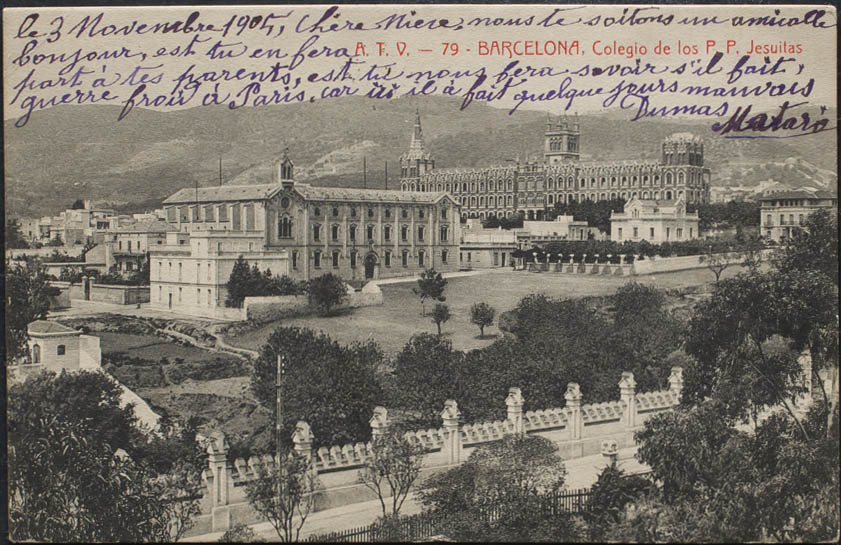 le 3 Novembre 1905, Chère Niece, nous te soitons un amicalle
bonjour, est tu en fera
A. T. V. — 79 - BARCELONA, Colegio de los P. P. Jesuitas
part à tes parents, est tu nous fera savoir s'il fait,
guerre froi à Paris, car ici il à fait quelque jours mauvais
Dumas
Mataró